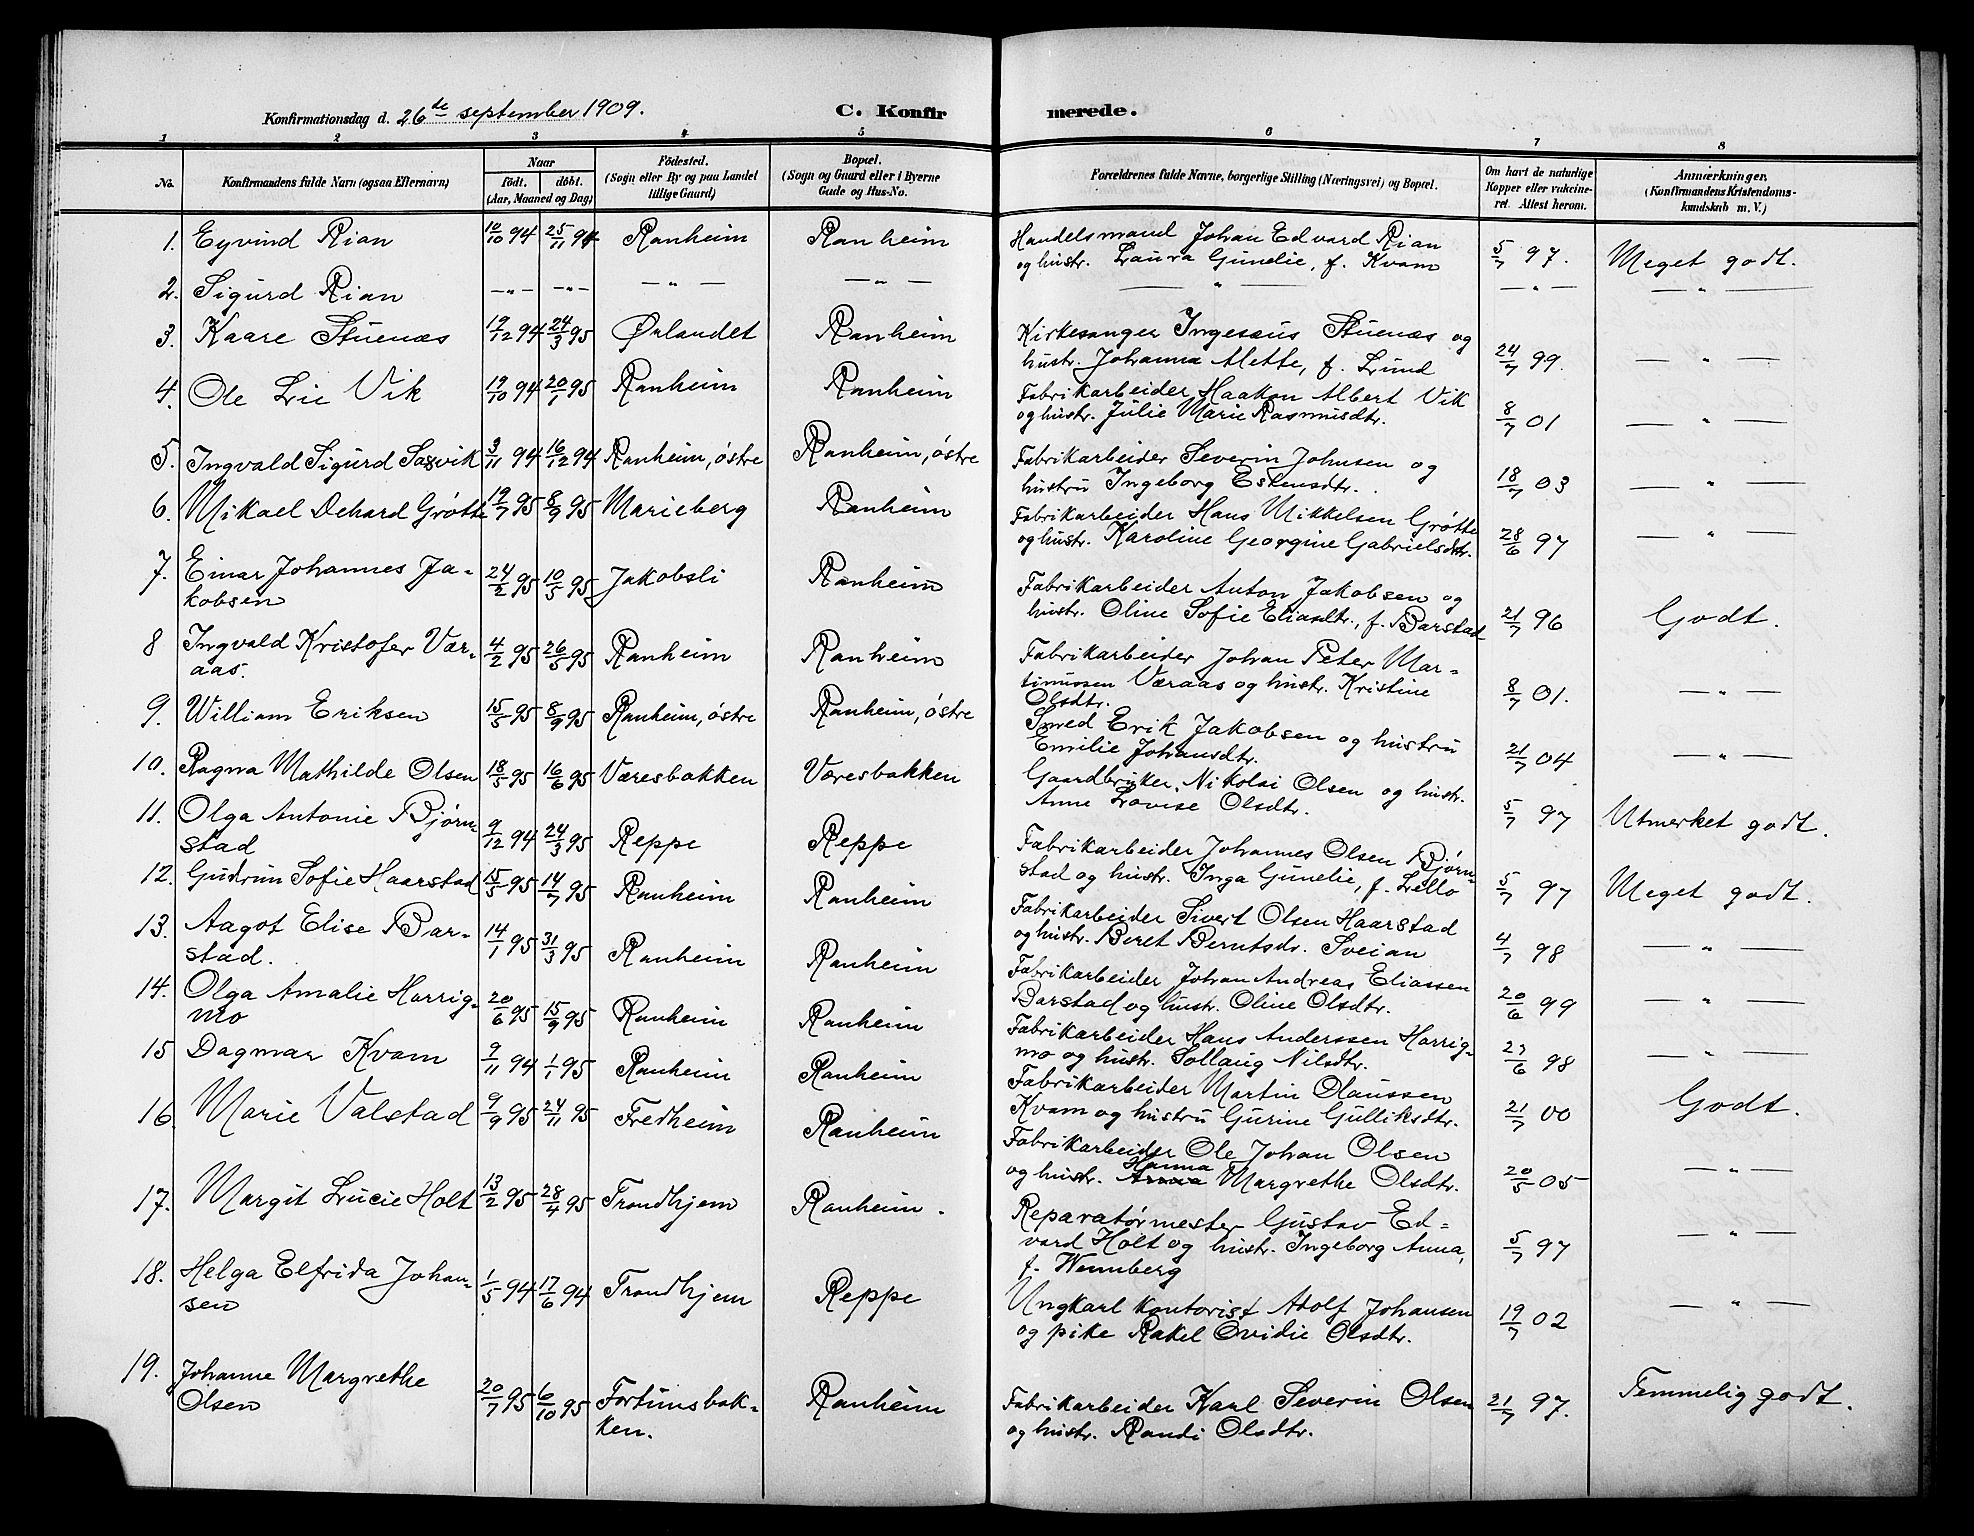 Konfirmationsdag d. 26de september 1909.
C. Konfirmerede.
1 2 3 4 5 6 7 8
No. Konfirmandens fulde Navn (ogsaa Efternavn) Naar Födested. Bopæl. Forældrenes fulde Navne, borgerlige Stilling (Næringsvei) og Bopæl. Om havt de naturlige Anmærkninger.
födt. döbt. (Sogn eller By og paa Landet (Sogn og Gaard eller i Byerne Kopper eller vakcine- (Konfirmandens Kristendoms-
(Aar, Maaned og Dag) tillige Gaard) Gade og Hus-No. ret. Attest herom. kundskab m. V.)
1. Eyvind Rian 10/10 94 25/11 94 Ranheim Ranheim Handelsmand Johan Edvard Rian
og hustr. Laura Gunelie, f. Kvam 5/7 97. Meget godt.
2. Sigurd Rian —"— —"— — " — — " — — " — —"— — " —
3. Kaare Stuenæs 19/12 94 24/3 95 Ørlandet Ranheim Kirkesanger Ingesæus Stuenæs og
hustr. Johanna Mette, f. Lund 24/7 99. — " —
4. Ole Lie Vik 19/10 94 20/1 95 Ranheim Ranheim Fabrikarbeider Haakon Albert Vik
og hustr. Julie Marie Rasmusdtr. 8/7 01 — " —
5. Ingvald Sigurd Saxvik 3/11 94 16/12 94 Ranheim, østre Ranheim, østre Fabrikarbeider Severin Johnsen og
hustru Ingeborg Estensdtr. 18/7 03 — " —
6. Mikael Dehard Grøtte 19/7 95 8/9 95 Marieberg Ranheim Fabrikarbeider Hans Mikkelsen Grøtte
og hustr. Karoline Georgine Gabrielsdtr. 28/6 97 — " —
7. Einar Johannes Ja-
kobsen 24/2 95 10/5 95 Jakobsli Ranheim Fabrikarbeider Anton Jakobsen og
hustr. Oline Sofie Eliasdtr., f. Barstad 21/7 96 Godt.
8 Ingvald Kristofer Vær-
aas. 4/2 95 26/5 95 Ranheim Ranheim Fabrikarbeider Johan Peter Mar-
tinussen Væraas og hustr. Kristine
Olsdtr. 8/7 01. — " —
9. William Eriksen 15/5 95 8/9 95 Ranheim, østre Ranheim, østre Smed Erik Jakobsen og hustru
Emilie Johansdtr. 21/7 04 — " —
10. Ragna Mathilde Olsen 18/5 95 16/6 95 Væresbakken Væresbakken Gaardbruker Nikolai Olsen og hustr.
Anne Lovise Olsdtr. 5/7 97 Utmerket godt.
11. Olga Antonie Bjørn-
stad 9/12 94 24/3 95 Reppe Reppe Fabrikarbeider Johannes Olsen Bjørn-
stad og hustr. Inga Gunelie, f. Lello 5/7 97 Meget godt.
12. Gudrun Sofie Haarstad 15/5 95 14/7 95 Ranheim Ranheim Fabrikarbeider Sivert Olsen Haarstad
og hustr. Beret Berntsdr. Sveian 4/7 98 — " —
13. Aagot Elise Bar-
stad. 14/1 95 31/3 95 Ranheim Ranheim Fabrikarbeider Johan Andreas Eliassen
Barstad og hustr. Oline Olsdtr. 20/6 99 — " —
14. Olga Amalie Harrig-
mo 20/6 95 15/9 95 Ranheim Ranheim Fabrikarbeider Hans Anderssen Harrig-
mo og hustr. Sollaug Nilsdtr. 27/6 98 — " —
15 Dagmar Kvam 9/11 94 1/1 95 Ranheim Ranheim Fabrikarbeider Martin Olaussen
Kvam og hustru Gurine Gulliksdtr. 21/7 00 Godt.
16. Marie Valstad 9/9 95 24/11 95 Fredheim Ranheim Fabrikarbeider Ole Johan Olsen
og hustr. Anna Hanna Margrethe Olsdtr. 20/5 05 — " —
17. Margit Lucie Holt 13/2 95 28/4 95 Trondhjem Ranheim. Reparatørmester Gustav Ed-
vard Holt og hustr. Ingeborg Anna,
f. Wennberg 5/7 97 — " —
18. Helga Elfrida Johan-
sen 1/5 94 17/6 94 Trondhjem Reppe Ungkarl kontorist Adolf Johansen
og pike Rakel Ovidie Olsdtr. 19/7 02 — " —
19. Johanne Margrethe
Olsen 20/7 95 6/10 95 Fortunsbak-
ken. Ranheim Fabrikarbeider Karl Severin Olsen
og hustr. Randi Olsdtr. 21/7 97. Temmelig godt.